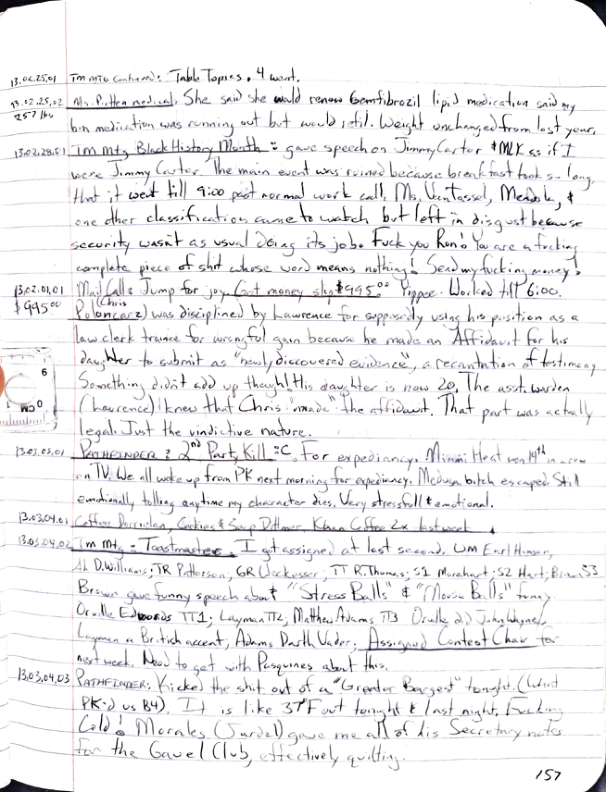 13.02.25.01 Tm mtg continued: Table Topics. 4 went.
13.02.25.02 Ms. Pitten medical. She said she would renew Gemfibrozil lipid medication said my
257 lbs medication was running out but would still. Weight unchanged from last year.
13.02.28.01 Tm Mtg Black History Month: gave speech on Jimmy Carter & MLK as if I
were Jimmy Carter. The main event was ruined because breakfast took so long
that it went till 9:00 past normal work call. Ms. VanTassel, &
one other classification came to watch but left in disgust because
security wasn't as usual doing its job. Fuck you Ron! You are a fucking
complete piece of shit whose word means nothing! Send my fucking money!
13.03.01.01 Mail Call: Jump for joy. Got money slip $995.00 Yippee. Worked till 6:00.
$995.00 (Chris
Poloncarz) was disciplined by Lawrence for supposedly using his position as a
law clerk trainee for wrongful gain because he made an Affidavit for his
daughter to submit as "newly discovered evidence", a recantation of testimony
Something didn't add up though! His daughter is now 20. The asst. warden
(Lawrence) knew that Chris "made" the affidavit. That part was actually
legal. Just the vindictive nature.
13.03.03.01 PATHFINDER: 2nd Part, Kill :C. For expediancy. Miami Heat won 14th in a row
on TV. We all woke up from PK next morning for expediency. Medusa bitch escaped. Still
emotionally tolling anytime my character dies. Very stressfull & emotional.
13.03.04.01 Coffee, Cookies & Soup Dittmer, Khan Coffee 2x last week
13.03.04.02 Tm Mtg: Toastmasters. I got assigned at last second. Earl Hanson,
Ah D. Williams; JR Patterson, GR Uecksesser, TT R. Thomas; S1 Morehart; S2 Hart; Brown S3
Brown gave funny speech about "Stress Balls" & "Mouse Balls" funny.
Orville Edwards TT1; Layman TT2; Matthew Adams TT3 Orville 2) John Wayne,
Layman a British accent, Adams Darth Vader. Assigned Contest Chair for
next week. Need to get with Pasquines about this.
13.03.04.03 PATHFINDER: Kicked the shit out of a "Greater Bargest" tonight. (
PK:d us B4). It is like 37°F out tonight & last night, Fucking
Cold! Morales (Jardel) gave me all of his Secretary notes
for the Gavel Club, effectively quitting.
9
CM
157